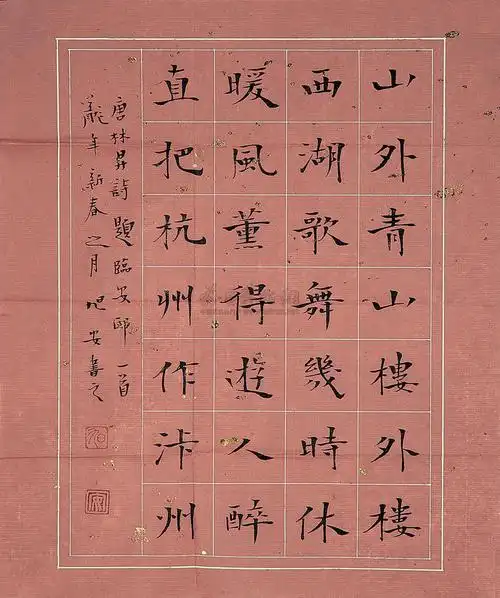 山外青山樓外樓
西湖歌舞幾時休
暖風薰得遊人醉
直把杭州作汴州
唐林昇詩題臨安邸一首
龍年新春之月旭安書之